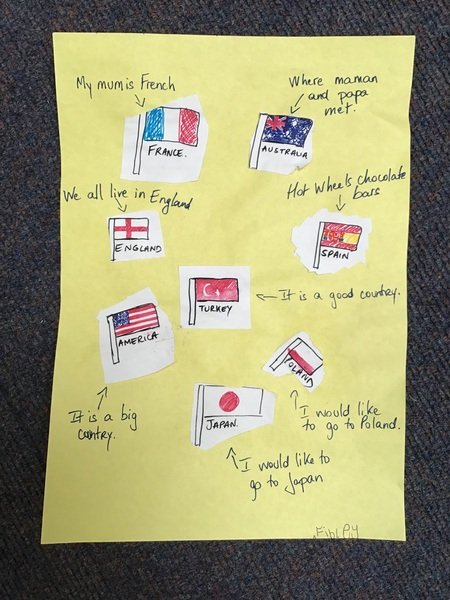 My mum is French
Where maman
and papa
met.
FRANCE.
AUSTRALIA
We all live in England
Hot Wheels chocolate
bars
ENGLAND
SPAIN
TURKEY
It is a good country.
AMERICA
POLAND
It is a big
cuntry.
JAPAN.
I would like
to go to Poland.
I would like to
go to Japan